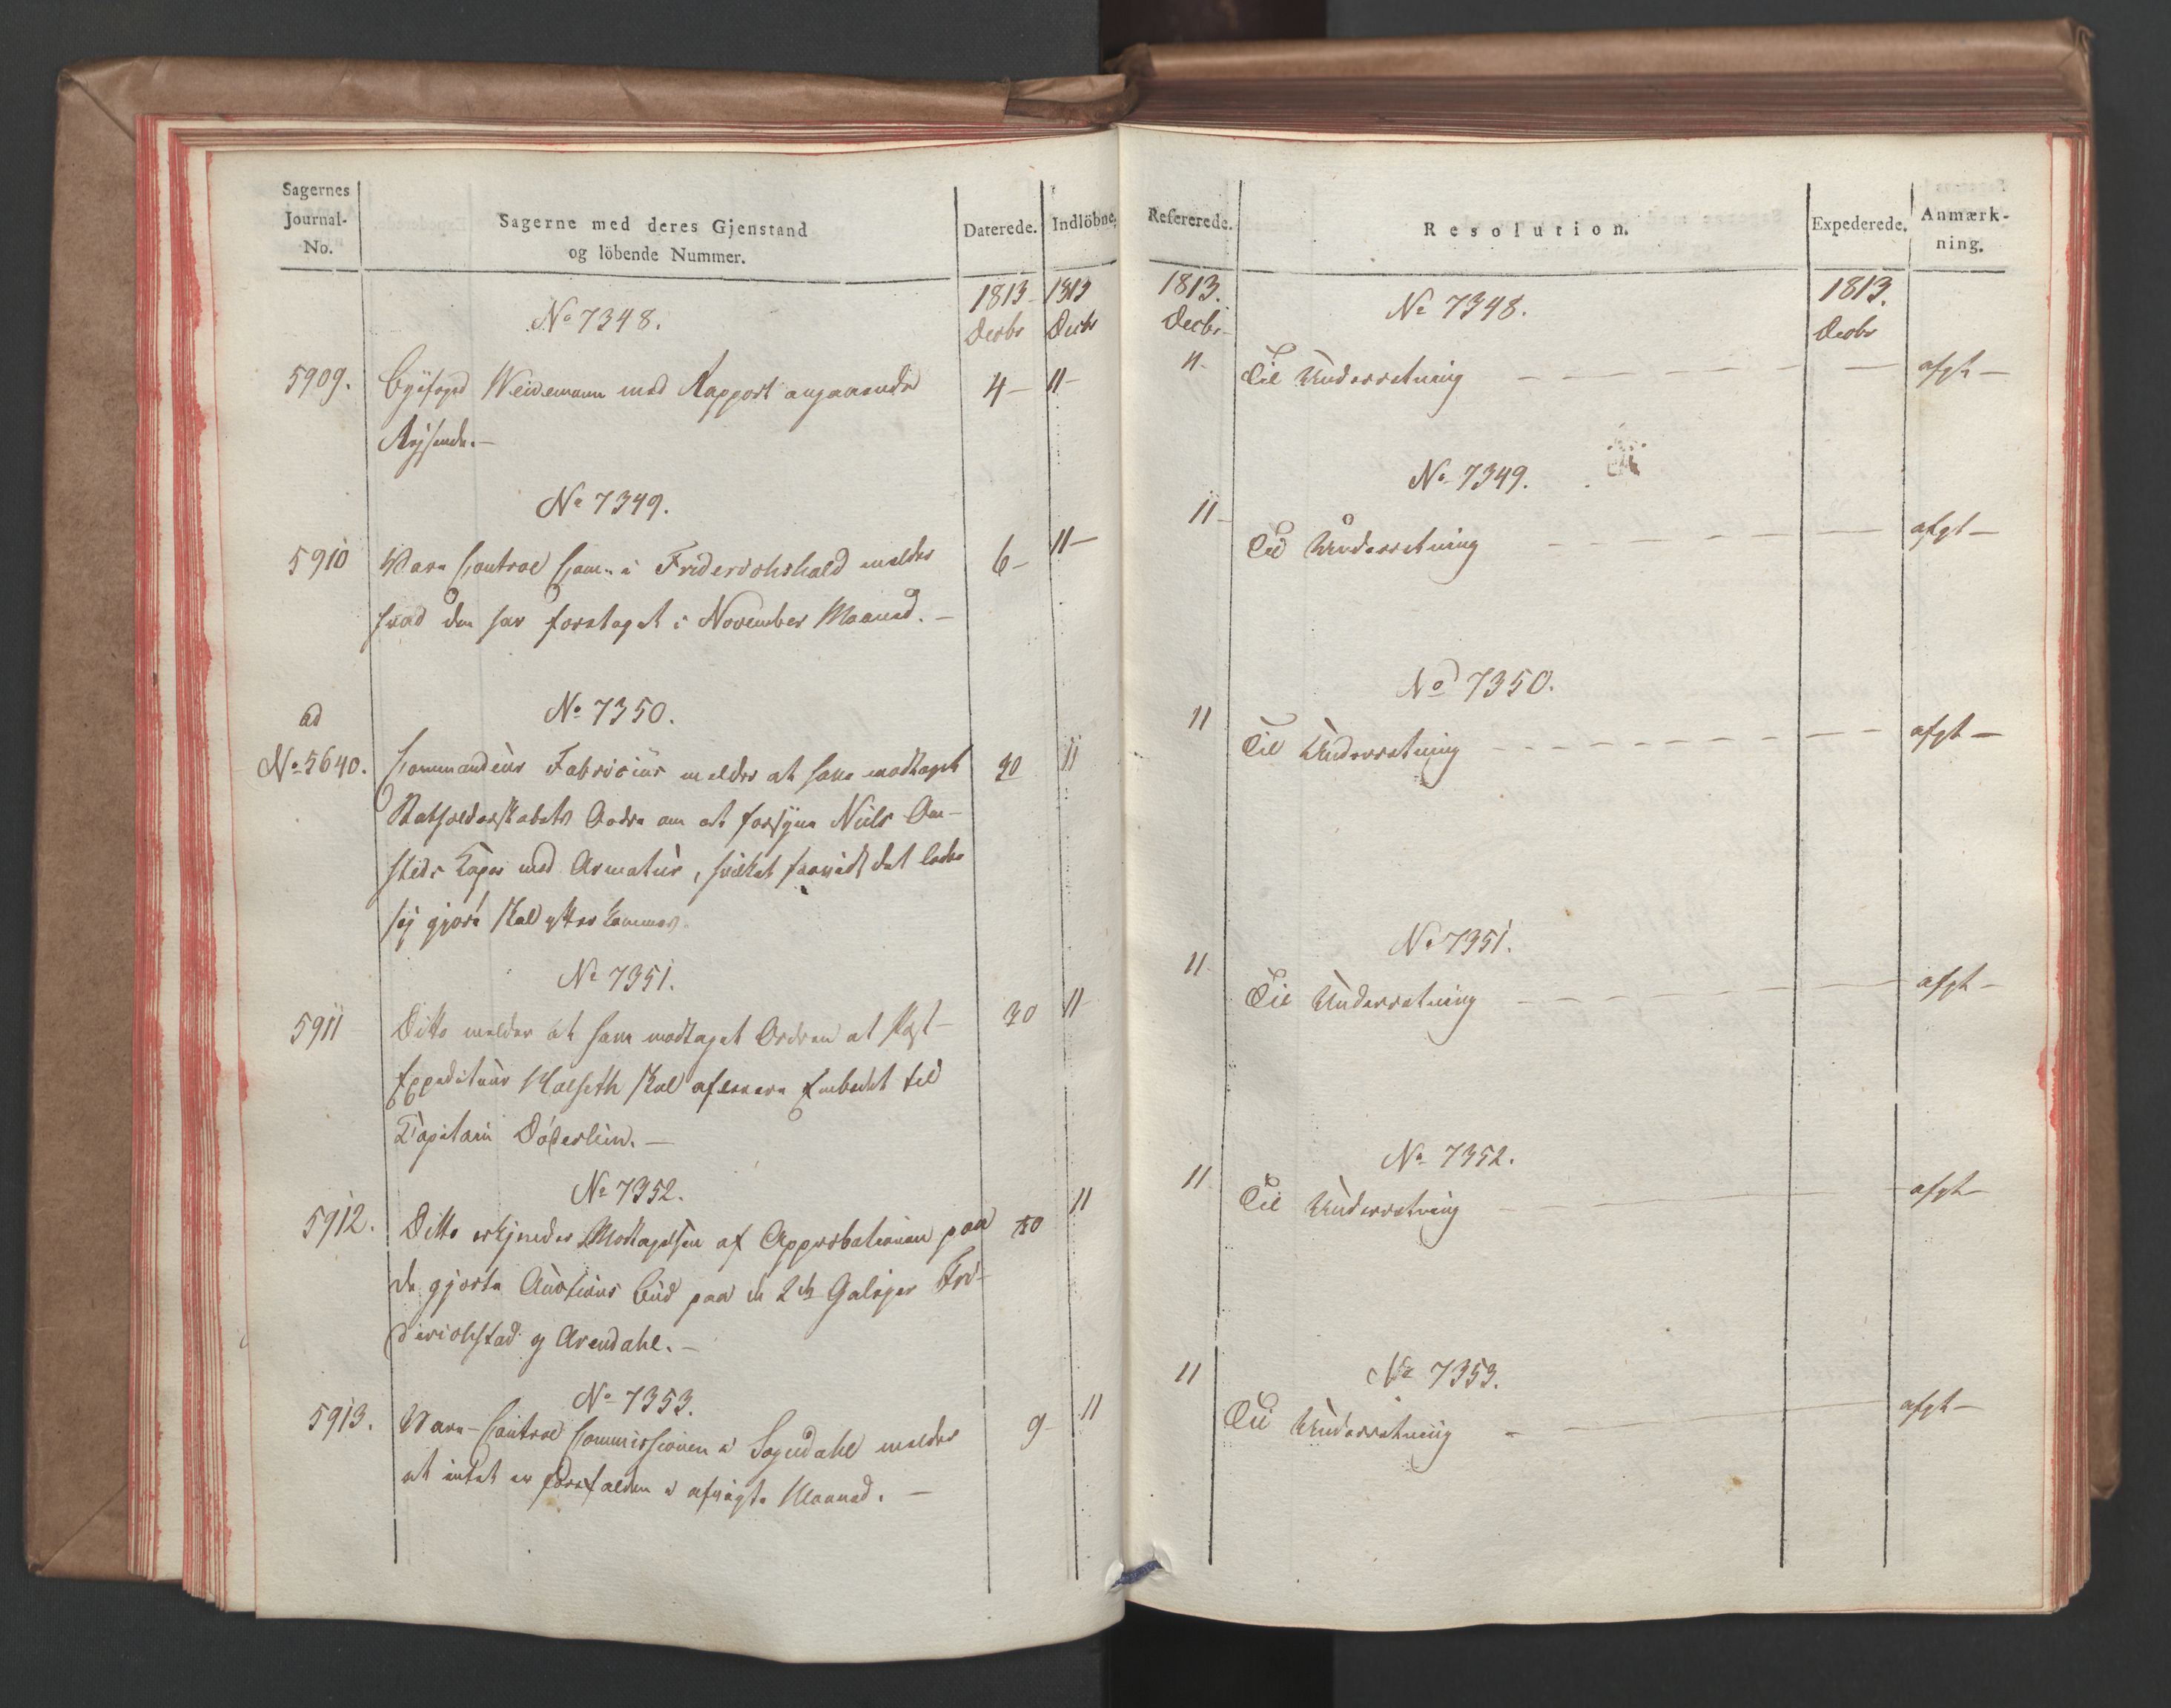 Sagernes
Journal-
No.
Sagerne med deres Gjenstand
og löbende Nummer.
Daterede.
Indlöbne.
1813
Decbr
1813
Decbr
No 7348.
5909.
Byefoged Weidemann med Rapport angaaende
4 –
11 –
Rejsende. –
No 7349.
5910
Vare Control Com: i Friderichshald melder
6 –
11 –
hvad den har foretaget i November Maaned. –
ad
No 5640.
No 7350.
Commandeur Fabricius melder at have modtaget
30
11
Statholderskabets Ordre om at forsyne Niels Aa-
Kaper med Armatur, hvilket saavidt det lader
sig gjøre skal efterkommes.
No 7351.
5911
Ditto melder at have modtaget Ordren at Post-
30
11
Expediteur Kalseth skal aflevere Embedet til
Capitain Døderlein. –
No 7352.
5912.
Ditto erkjender Modtagelsen af Approbationen paa
30
11
de gjorte Auctions Bud paa de 2de Galejer Fri-
derichstad og Arendahl. –
No 7353.
5913.
Vare-Control Commissionen i Sogndahl melder
9 –
11
at intet er forefalden i afvigte Maaned. –
Refererede.
Resolution.
Expederede.
Anmærk-
ning.
1813.
Decbr
1813.
Decbr
No 7348.
11.
Til Underretning – – – – – –
afgt –
No 7349.
11 –
Til Underretning – – – – – –
afgt –
No 7350.
11
Til Underretning – – – – – –
afgt –
No 7351.
11
Til Underretning – – – – – –
afgt –
No 7352.
11
Til Underretning – – – – –
afgt –
No 7353.
11
Til Underretning – – – –
afgt –